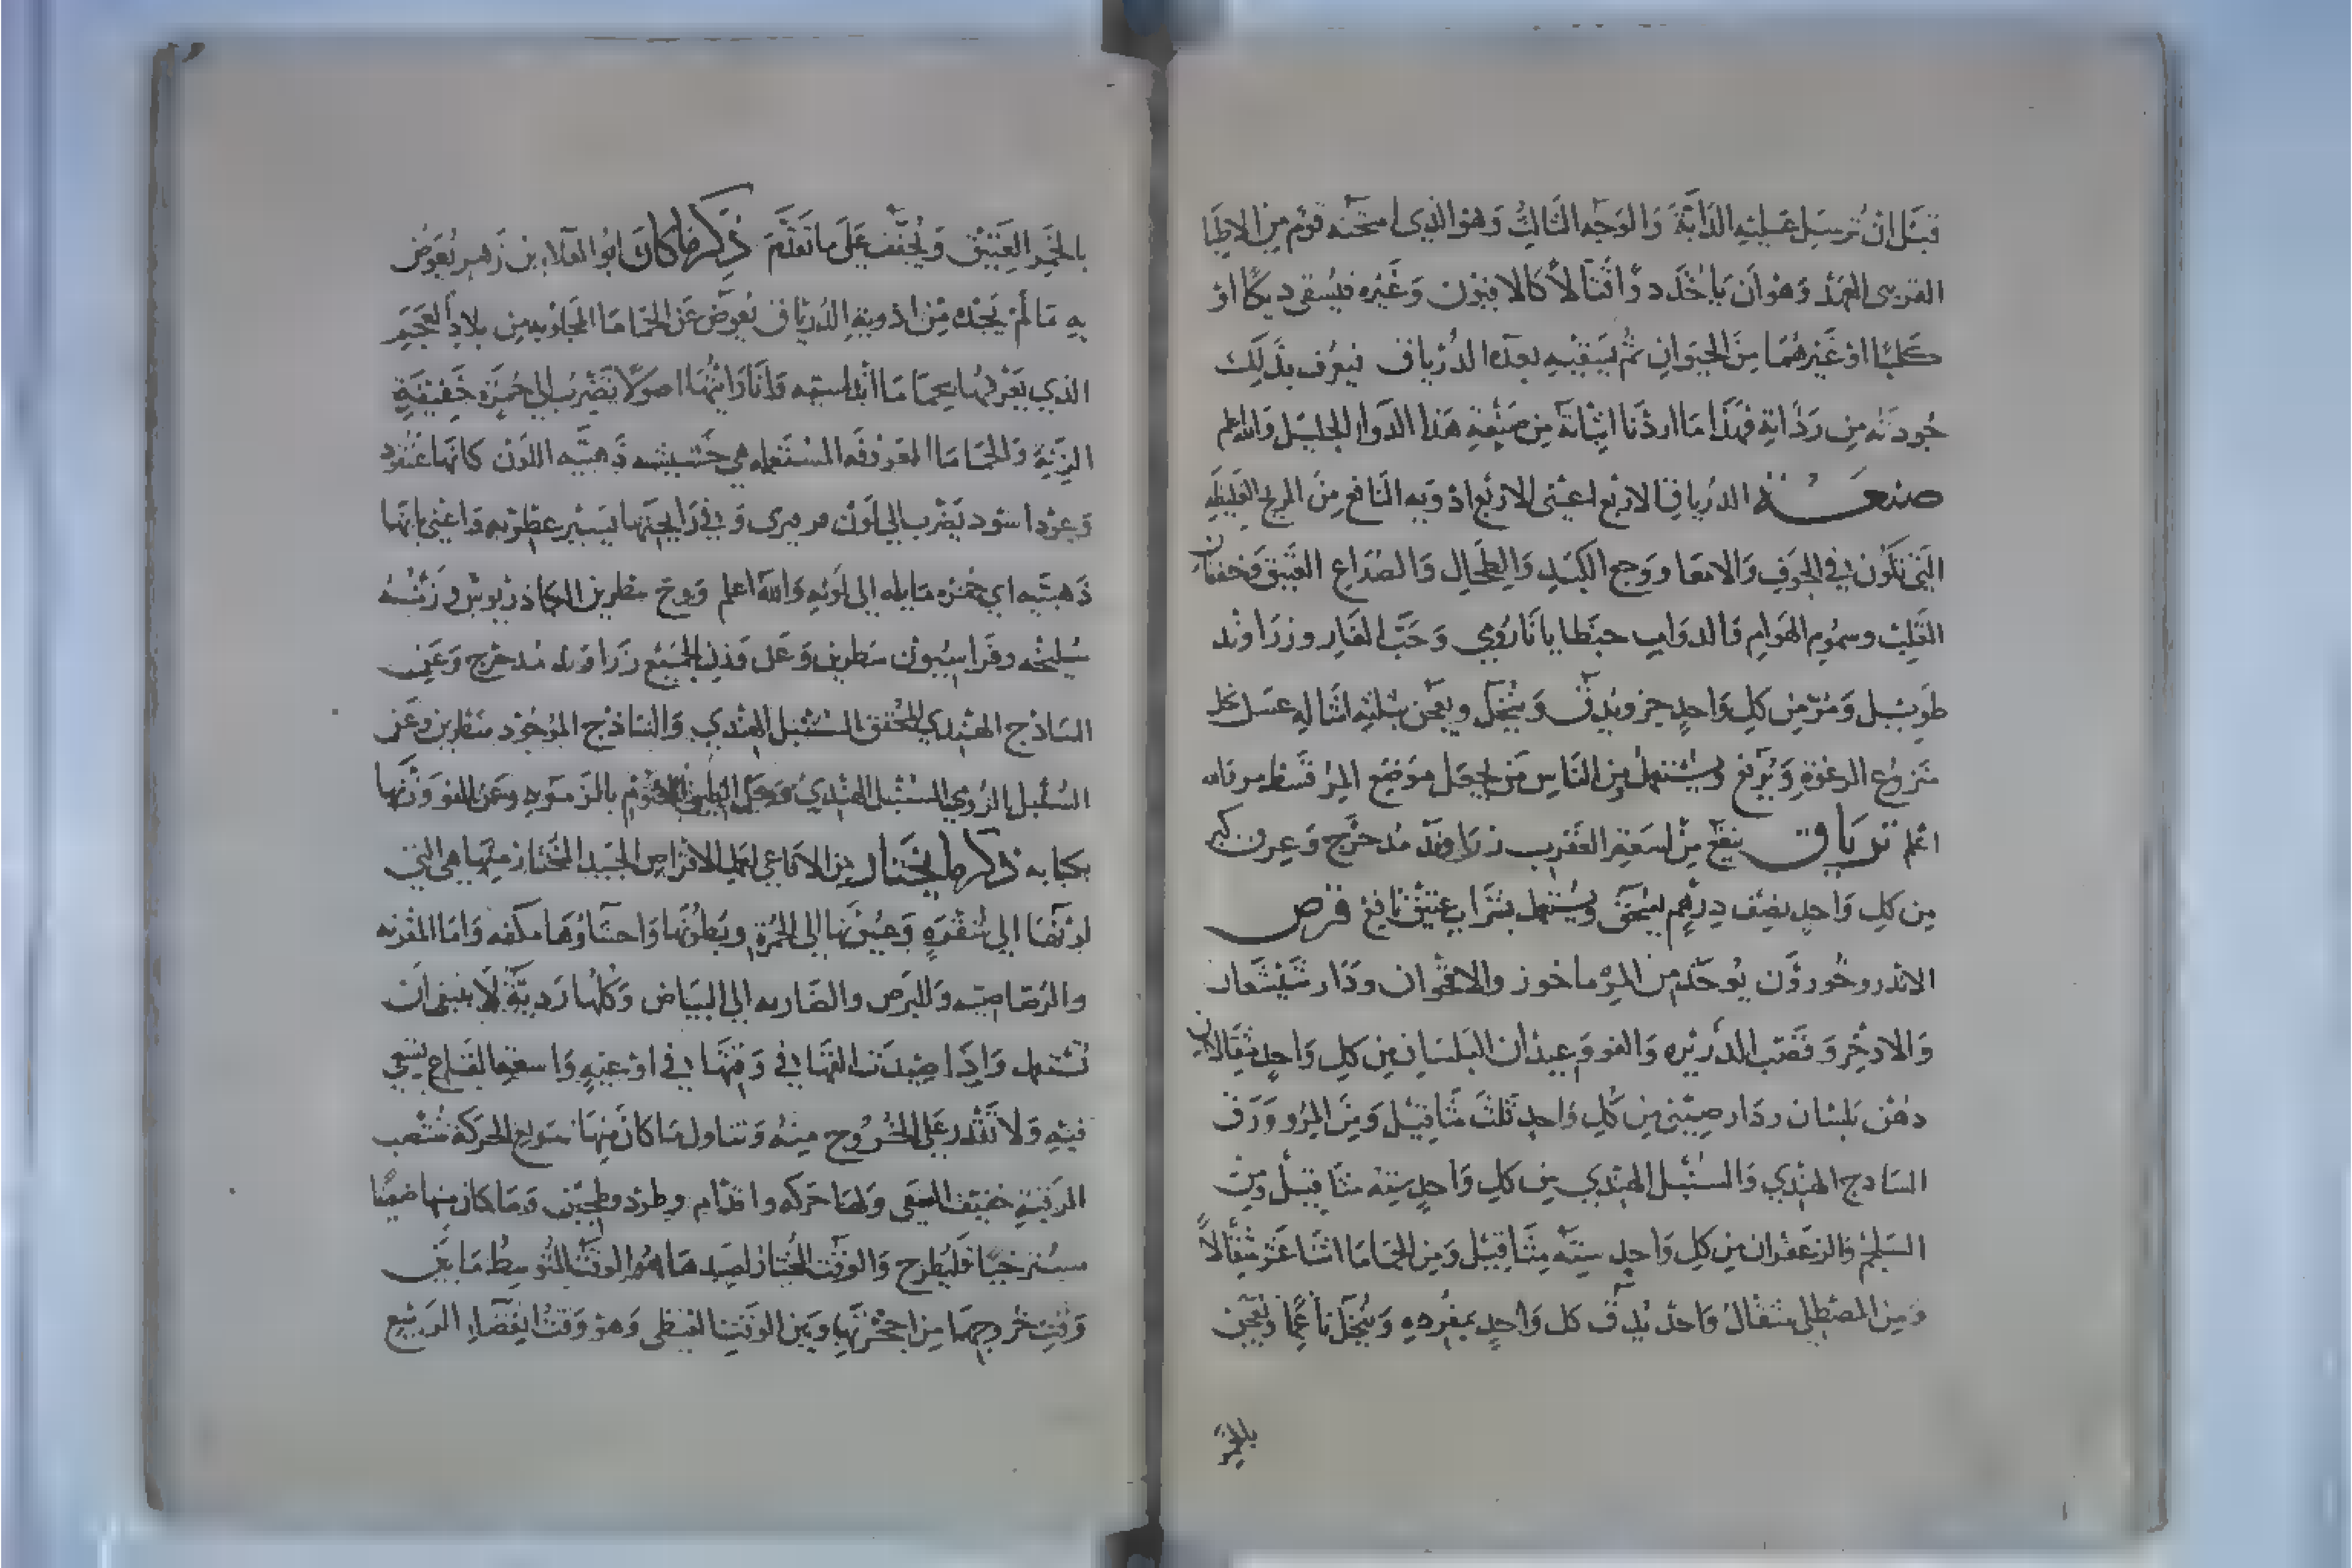 قبَل ان تُرسَل عَليْه الدَابَّةَ وَالوَجْه الثَالِثُ وَهوَ الذِي امتحَنه قومٌ مِن الاطِبَّا
وَهوَ اَن يَاخُذ دوَاقتَالاً كالافيُون وَغَيْره فيُسقى ديكًا اوْ
كلبًا اوْ غَيْرهُمَا مِنَ الحيَوانِ ثُمَّ يَسقِيْهِ بعدَه الدُرْيَاق فيُعْرف بذَلِكَ
جُودتَه مِن رَدَاتهِ فهَذَا مَا اردْنَا اثبَاتَهُ مِن مَنفعَةِ هَذا الدَوا الجليْل وَالله اعلم
صنعَة الدُريَاق الاربَع اعنى الاربَع ادْويَه النَافع مِنَ الريح الغَليظه
التِي تَكُون في الجَوفِ وَالامعَا ووَجع الكَبِدِ وَالطِحَالِ وَالصُدَاعِ العَتيق وَخفقَان
القَلبْ وسمُومِ الهَوَامِ وَالدوَاب جنطِيانَا رُومي وَحَبّ الغَار وزرَاوند
طَويْل وَمُرّ مِن كلِ وَاحدٍ جز ويُدقّ وَيُنخَل ويعجَن بثلثِه امثَاله عسَل نحل
مَنزوُع الرغوَةِ وَيُرْفع ويُستَعمل ومِنَ النَاسِ مَن يجعَل مَوضعَ المُرّ قسط مر والله
اعْلم تريَاق ينفَع مِنْ لسعَةِ العَقرب زرَاوَند مُدحرَج وَعِرق كبر
مِن كلِ وَاحدٍ نصْف دِرْهَم يُسحَق ويُستعمَل بشَراب عتيْق نافعْ قرص
الاندروخورُون يُوخَذ مِن المرْماخوز والاقحُوَان ودَار شَيْشَعان
وَالادخِر وَقصَب الذَريْره وَالفو وَعيدَان البَلسَان مِن كلِ وَاحدٍ مثقَالان
دهن بَلسَان ودَار صِيْني مِن كُلِ وَاحدٍ ثلث مثَاقيْل وَمنَ المُرّ وَوَرَق
السَادج الهنْدي وَالسُنْبُل الهنْدِي مِن كلِ وَاحدٍ سِتَّه مثَاقِيْل وَمِنْ
السَليخَة وَالزعفرَان مِن كلِ وَاحدٍ سِتَّه مثَاقِيْل وَمِن الحَمَامَا اثنَا عَشر مثقَالاً
وَمِن المصْطكى مثقَالْ وَاحدْ يُدقّ كل وَاحدٍ بمفْردهِ وَيُنخَل ناعمًا ويُعْجَن
بالخمر
بالخَمرِ العَتيْق وَيُجَفّف عَلَى مَا تقَدّمَ ذكر ما كان ابُو العَلاء بن زَهر يُعَوّض
بهِ مَا لَمْ يَجدْه مِن ادْويَةِ الدُريَاق يُعوِّض عَن الحمَامَا المجلوبه مِن بلادِ العَجَم
الذي يَعْرفهَا وَانَا رَايتُهَا اصولاً تَضْرب الى حُمرَة خَفِيْفَةٍ
وَالحَمَامَا المَعرُوفَه المُسْتَعمله هي حَشيشه ذَهبيَّه اللَوْن كَانَّهَا عنقود
وَعُوْد اسْود يَضْرب الى لَون وَفي رَايحَتهَا يَسيْر عطريه وَاعنى بانّهَا
ذَهبيَّه اي حُمْره مَايله الى لَونِهِ وَالله اعلم وَوج شطرين
سَليخَه وفَراسيُون شطرين وَعَلى وَذن الجَميْع زرَاوَند مُدحرَج وَعَن
السَاذج الهنْدي السُنْبُل الهنْدي وَالسَاذج الموجُود شطرين وعَن
السُنْبل الرُومي السُنْبُل الهنْدي وَعن الفو وَزنهَا
كبابه ذكر ما يختار مِن الافاعي لعَمل الاقرَاص الجَيد المختَار مِنهَا هي التي
لونُهَا الى شُقْرَهِ وَعيُونُهَا الى الحُمْرَةِ وَبطُونُهَا وَاحشَاوُهَا وَامَّا المقْرنَه
والرَصَاصيّه وَالبَرص والضَاربه الى البيَاض وَكُلّهَا رَديَّةٌ لَا ينبَغى اَن
تُسْتَعمل وَاذَا صِيْدَت القهَا في وَقتهَا في اوْعيَةٍ وَاسعَةِ القَاع تَسْعى
فيْهِ وَلا تقْدر عَلى الخُرُوج مِنهُ وَتنَاول مَا كانَ مِنهَا سَريْع الحرَكة مُنْتَصب
الرَقبَةِ خفيْف السَعى وَلهَا حَركه وَاقدَام وَمَا كانَ مِنهَا ضعيْفًا
مسترخيًا فليُطرَح وَالوقْت المُختَار لصَيدهَا هُوَ الوقْت المتوسِط مَا بَيْن
وَقت خُروجهَا مِن اجحرتهَا وَبَين الوَقت القَيظى وَهوَ وَقتُ انقِضَاءِ الرَبيْع